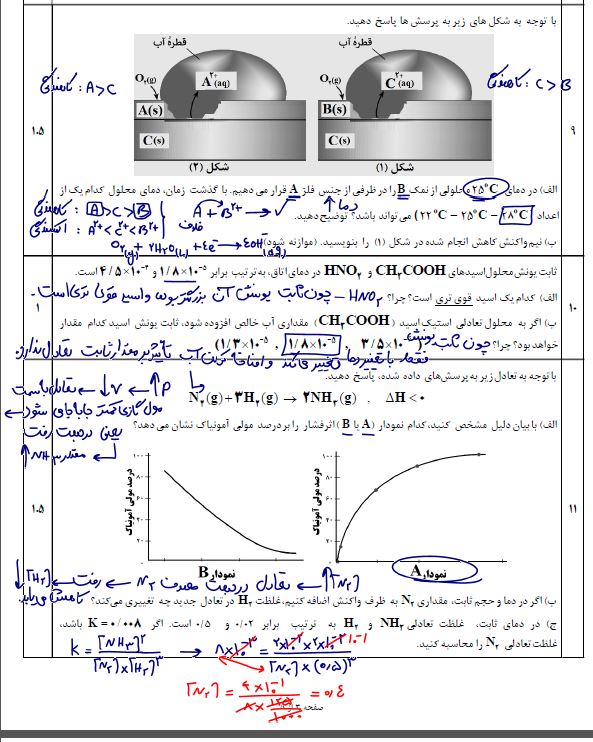 با توجه به شکل های زیر به پرسش ها پاسخ دهید.
قطرهٔ آب
قطرهٔ آب
کاهندگی : A>C
کاهندگی : C>B
O₂(g)
A²⁺(aq)
O₂(g)
C²⁺(aq)
A(s)
B(s)
C(s)
C(s)
شکل (۲)
شکل (۱)
۹
۱.۵
الف) در دمای ۲۵°C محلولی از نمک B را در ظرفی از جنس فلز A قرار می دهیم. با گذشت زمان، دمای محلول کدام یک از
اعداد (۲۲°C – ۲۵°C – ۲۸°C) می تواند باشد؟ توضیح دهید.
دما ↑
کاهندگی : A>C>B
اکسندگی : A²⁺<C²⁺<B²⁺
A + B²⁺ → ✓
ظرف
ب) نیم واکنش کاهش انجام شده در شکل (۱) را بنویسید. (موازنه شود)
O₂(g) + 2H₂O(l) + 4e⁻ → 4OH⁻(aq)
ثابت یونش محلول اسیدهای CH₃COOH و HNO₂ در دمای اتاق، به ترتیب برابر ۱/۸×۱۰⁻⁵ و ۴/۵×۱۰⁻⁴ است.
۱۰
۱
الف) کدام یک اسید قوی تری است؟ چرا؟ HNO₂ – چون ثابت یونش آن بزرگتر بوده و اسید قوی تری است.
ب) اگر به محلول تعادلی استیک اسید (CH₃COOH) مقداری آب خالص افزوده شود، ثابت یونش اسید کدام مقدار
خواهد بود؟ چرا؟ (۱/۳×۱۰⁻⁵ , ۱/۸×۱۰⁻⁵ , ۳/۵×۱۰⁻⁵) چون ثابت یونش
فقط با تغییر دما تغییر می کند و اضافه کردن آب تاثیر بر مقدار ثابت تعادل ندارد
با توجه به تعادل زیر به پرسش های داده شده، پاسخ دهید.
N₂(g) + ۳H₂(g) → ۲NH₃(g) , ΔH < ۰
P↑ → V↓ → تعادل به سمت
مول گازی کمتر جابه جای شود
یعنی در جهت رفت
مقدار NH₃ ↑
الف) با بیان دلیل مشخص کنید، کدام نمودار (A یا B) اثر فشار را بر درصد مولی آمونیاک نشان می دهد؟
درصد مولی آمونیاک
درصد مولی آمونیاک
۱۰۰
۸۰
۶۰
۴۰
۲۰
۰
۱۰۰
۸۰
۶۰
۴۰
۲۰
۰
نمودار B
نمودار A
۱۱
۱.۵
[N₂]↑ → تعادل در جهت مصرف N₂ → رفت → [H₂]↓
کاهش می یابد
ب) اگر در دما و حجم ثابت، مقداری N₂ به ظرف واکنش اضافه کنیم، غلظت H₂ در تعادل جدید چه تغییری می کند؟
ج) در دمای ثابت، غلظت تعادلی NH₃ و H₂ به ترتیب برابر ۰/۰۲ و ۰/۵ است. اگر K = ۰/۰۰۸ باشد،
غلظت تعادلی N₂ را محاسبه کنید.
K = [NH₃]² / [N₂]×[H₂]³ → ۸×۱۰⁻³ = ۲×۱۰⁻²×۲×۱۰⁻² / [N₂]×(۰/۵)³
۱۰⁻¹
[N₂] = ۴×۱۰⁻¹ / ۸×۱۲۵/۱۰۰۰ = ۰/۴